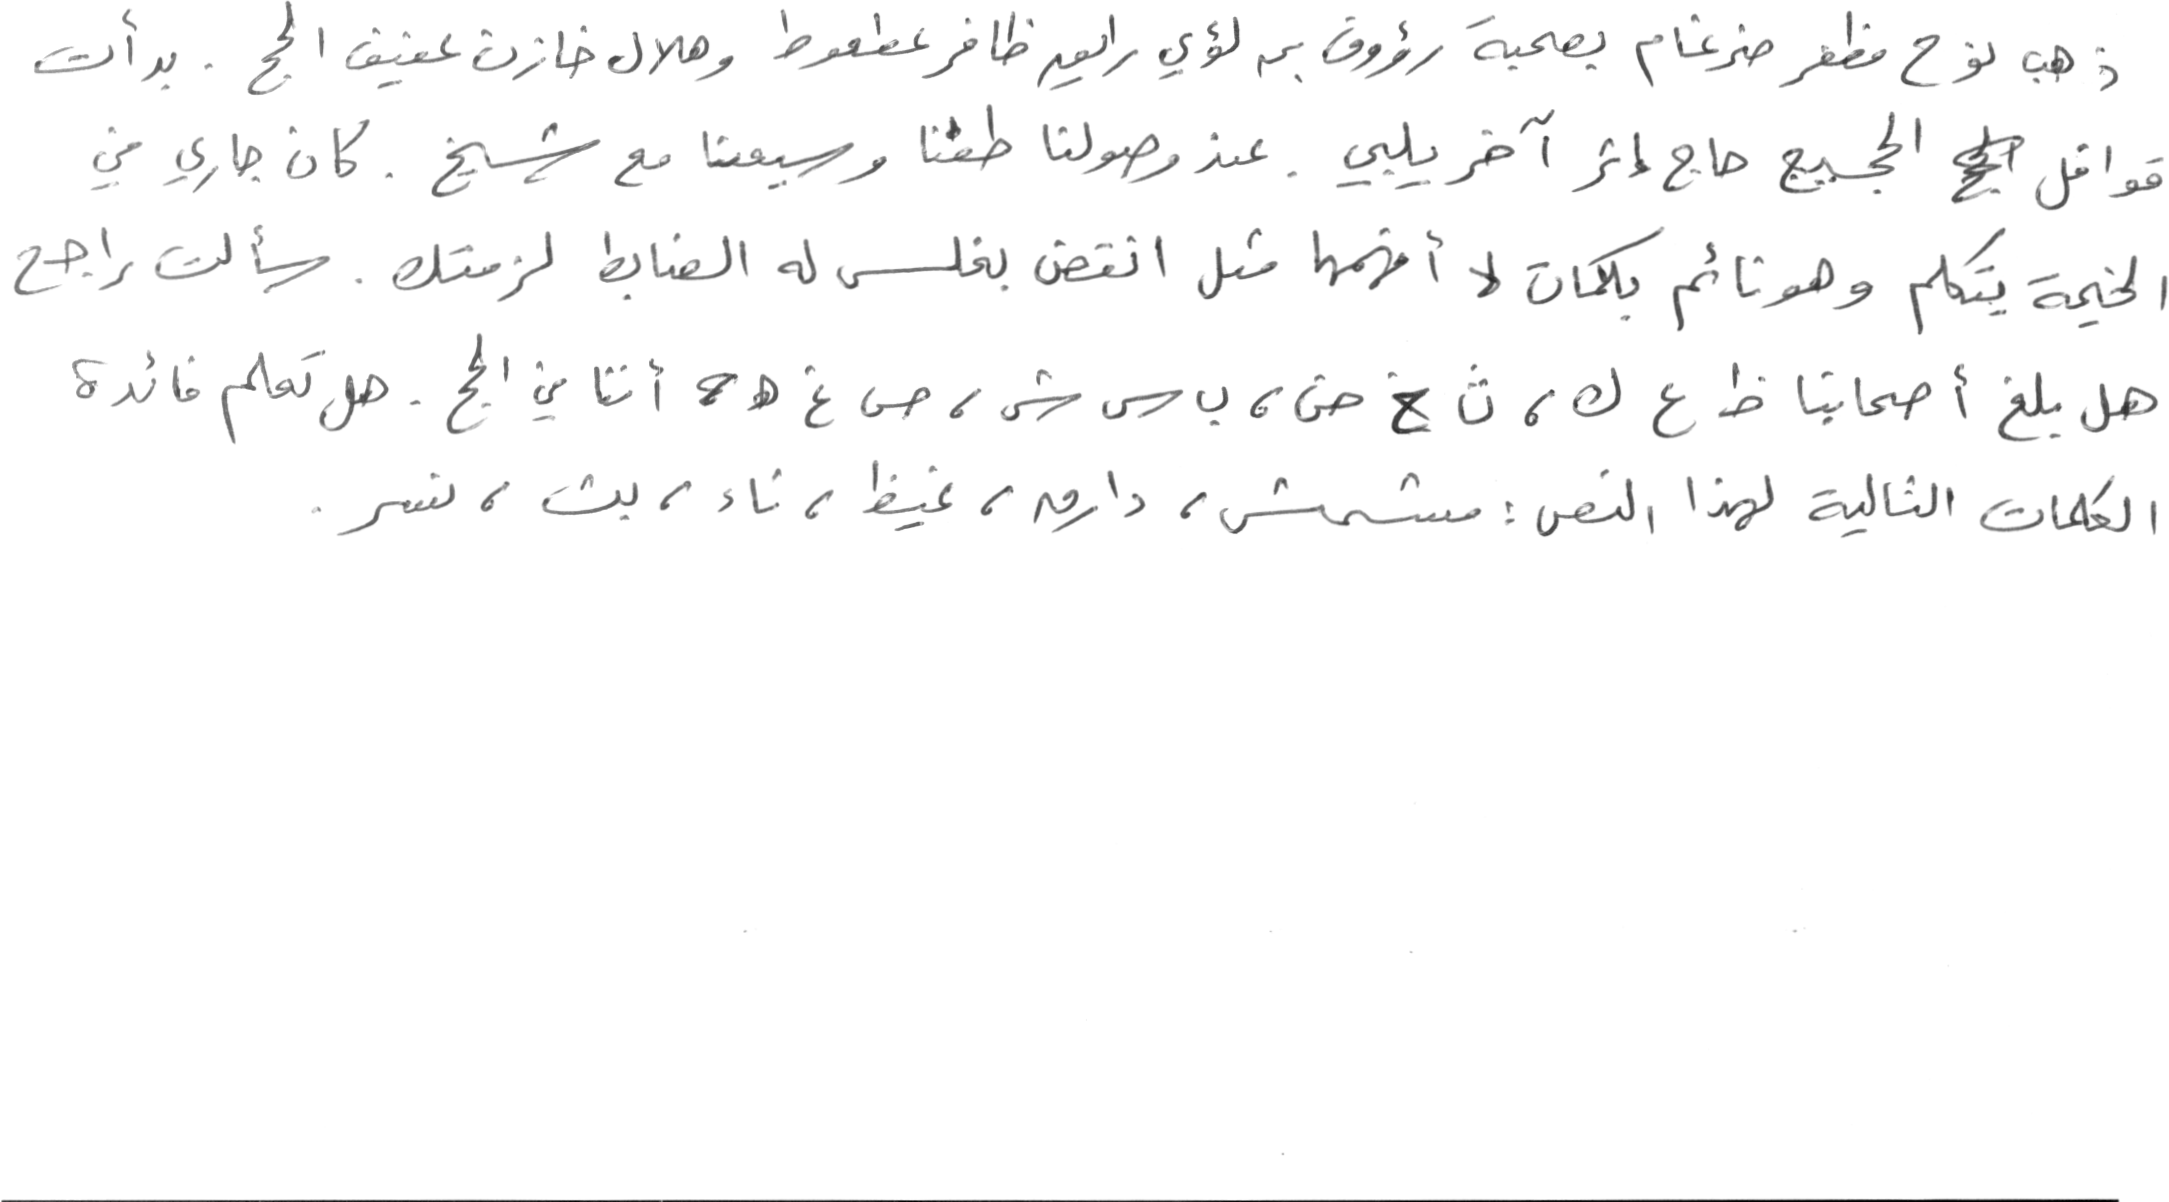 ذهب نوح مظفر ضرغام بصحبة رؤوف بن لؤي رابعه ظافر عطعوط وهلال خازن عفيف الحج . بدأت
قوافل الحجيج حاج إثر آخر يلبي . عند وصولنا طفنا وسعينا مع شيخ . كان جاري في
الخيمة يتكلم وهو نائم بكلمات لا أفهمها مثل انقض بغلس له الضابط لزمتك . سألت راجح
هل بلغ أصحابنا ظ ع ك ، ث خ ض ، ب س ش ، ص غ ه ح أننا في الحج . هل تعلم فائدة
الكلمات التالية لهذا النص : مشمش ، دارم ، غيظ ، ناء ، بث ، نسر .